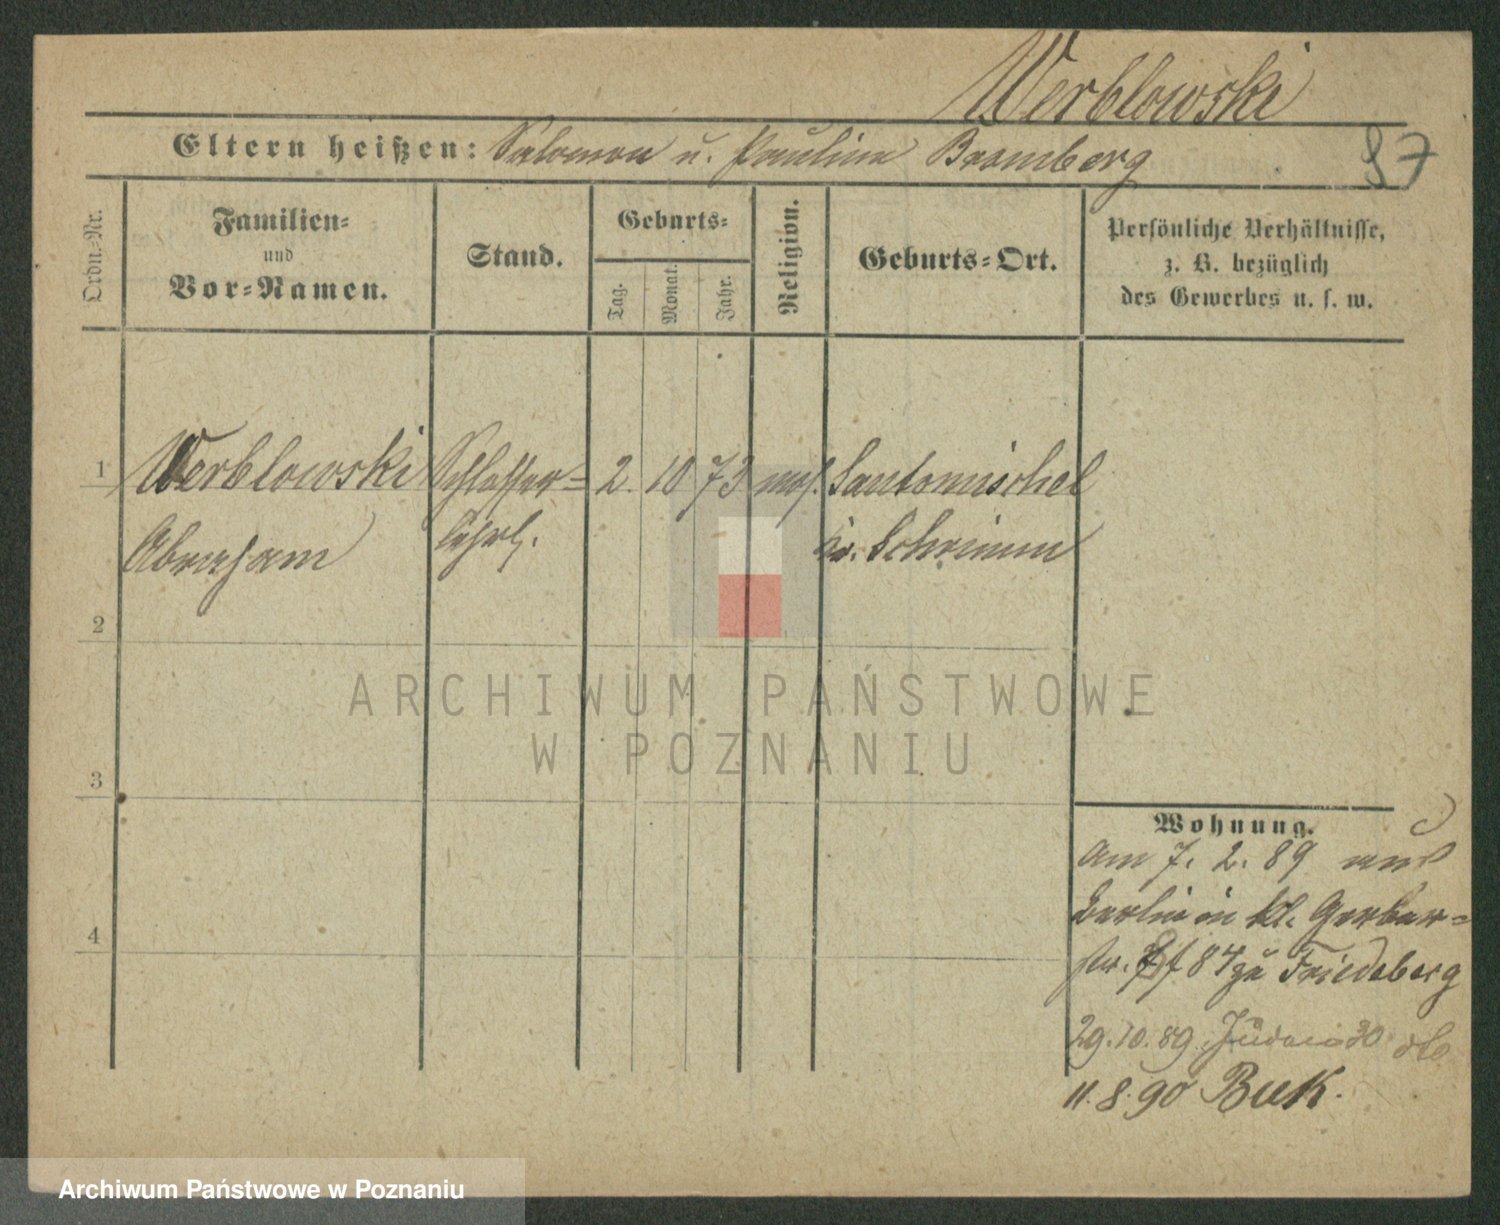 Werblowski
Eltern heißen: Salomon u. Pauline Bromberg
87
Ordn.-Nr.
Familien-
und
Vor-Namen.
Stand.
Geburts-
Tag.
Monat.
Jahr.
Religion.
Geburts-Ort.
Persönliche Verhältnisse,
z. B. bezüglich
des Gewerbes u. s. w.
1 Werblowski Schlosser- 2. 10 73 mos. Santomischel
Abraham lehrl. Kr. Schrimm
2
3
4
ARCHIWUM PAŃSTWOWE
W POZNANIU
Wohnung.
Am 7. 2. 89 aus
Berlin in kl. Gerber-
str. 84 zu Friedeberg
29.10.89 Juden 30 dto
11.8.90 Buk.
Archiwum Państwowe w Poznaniu